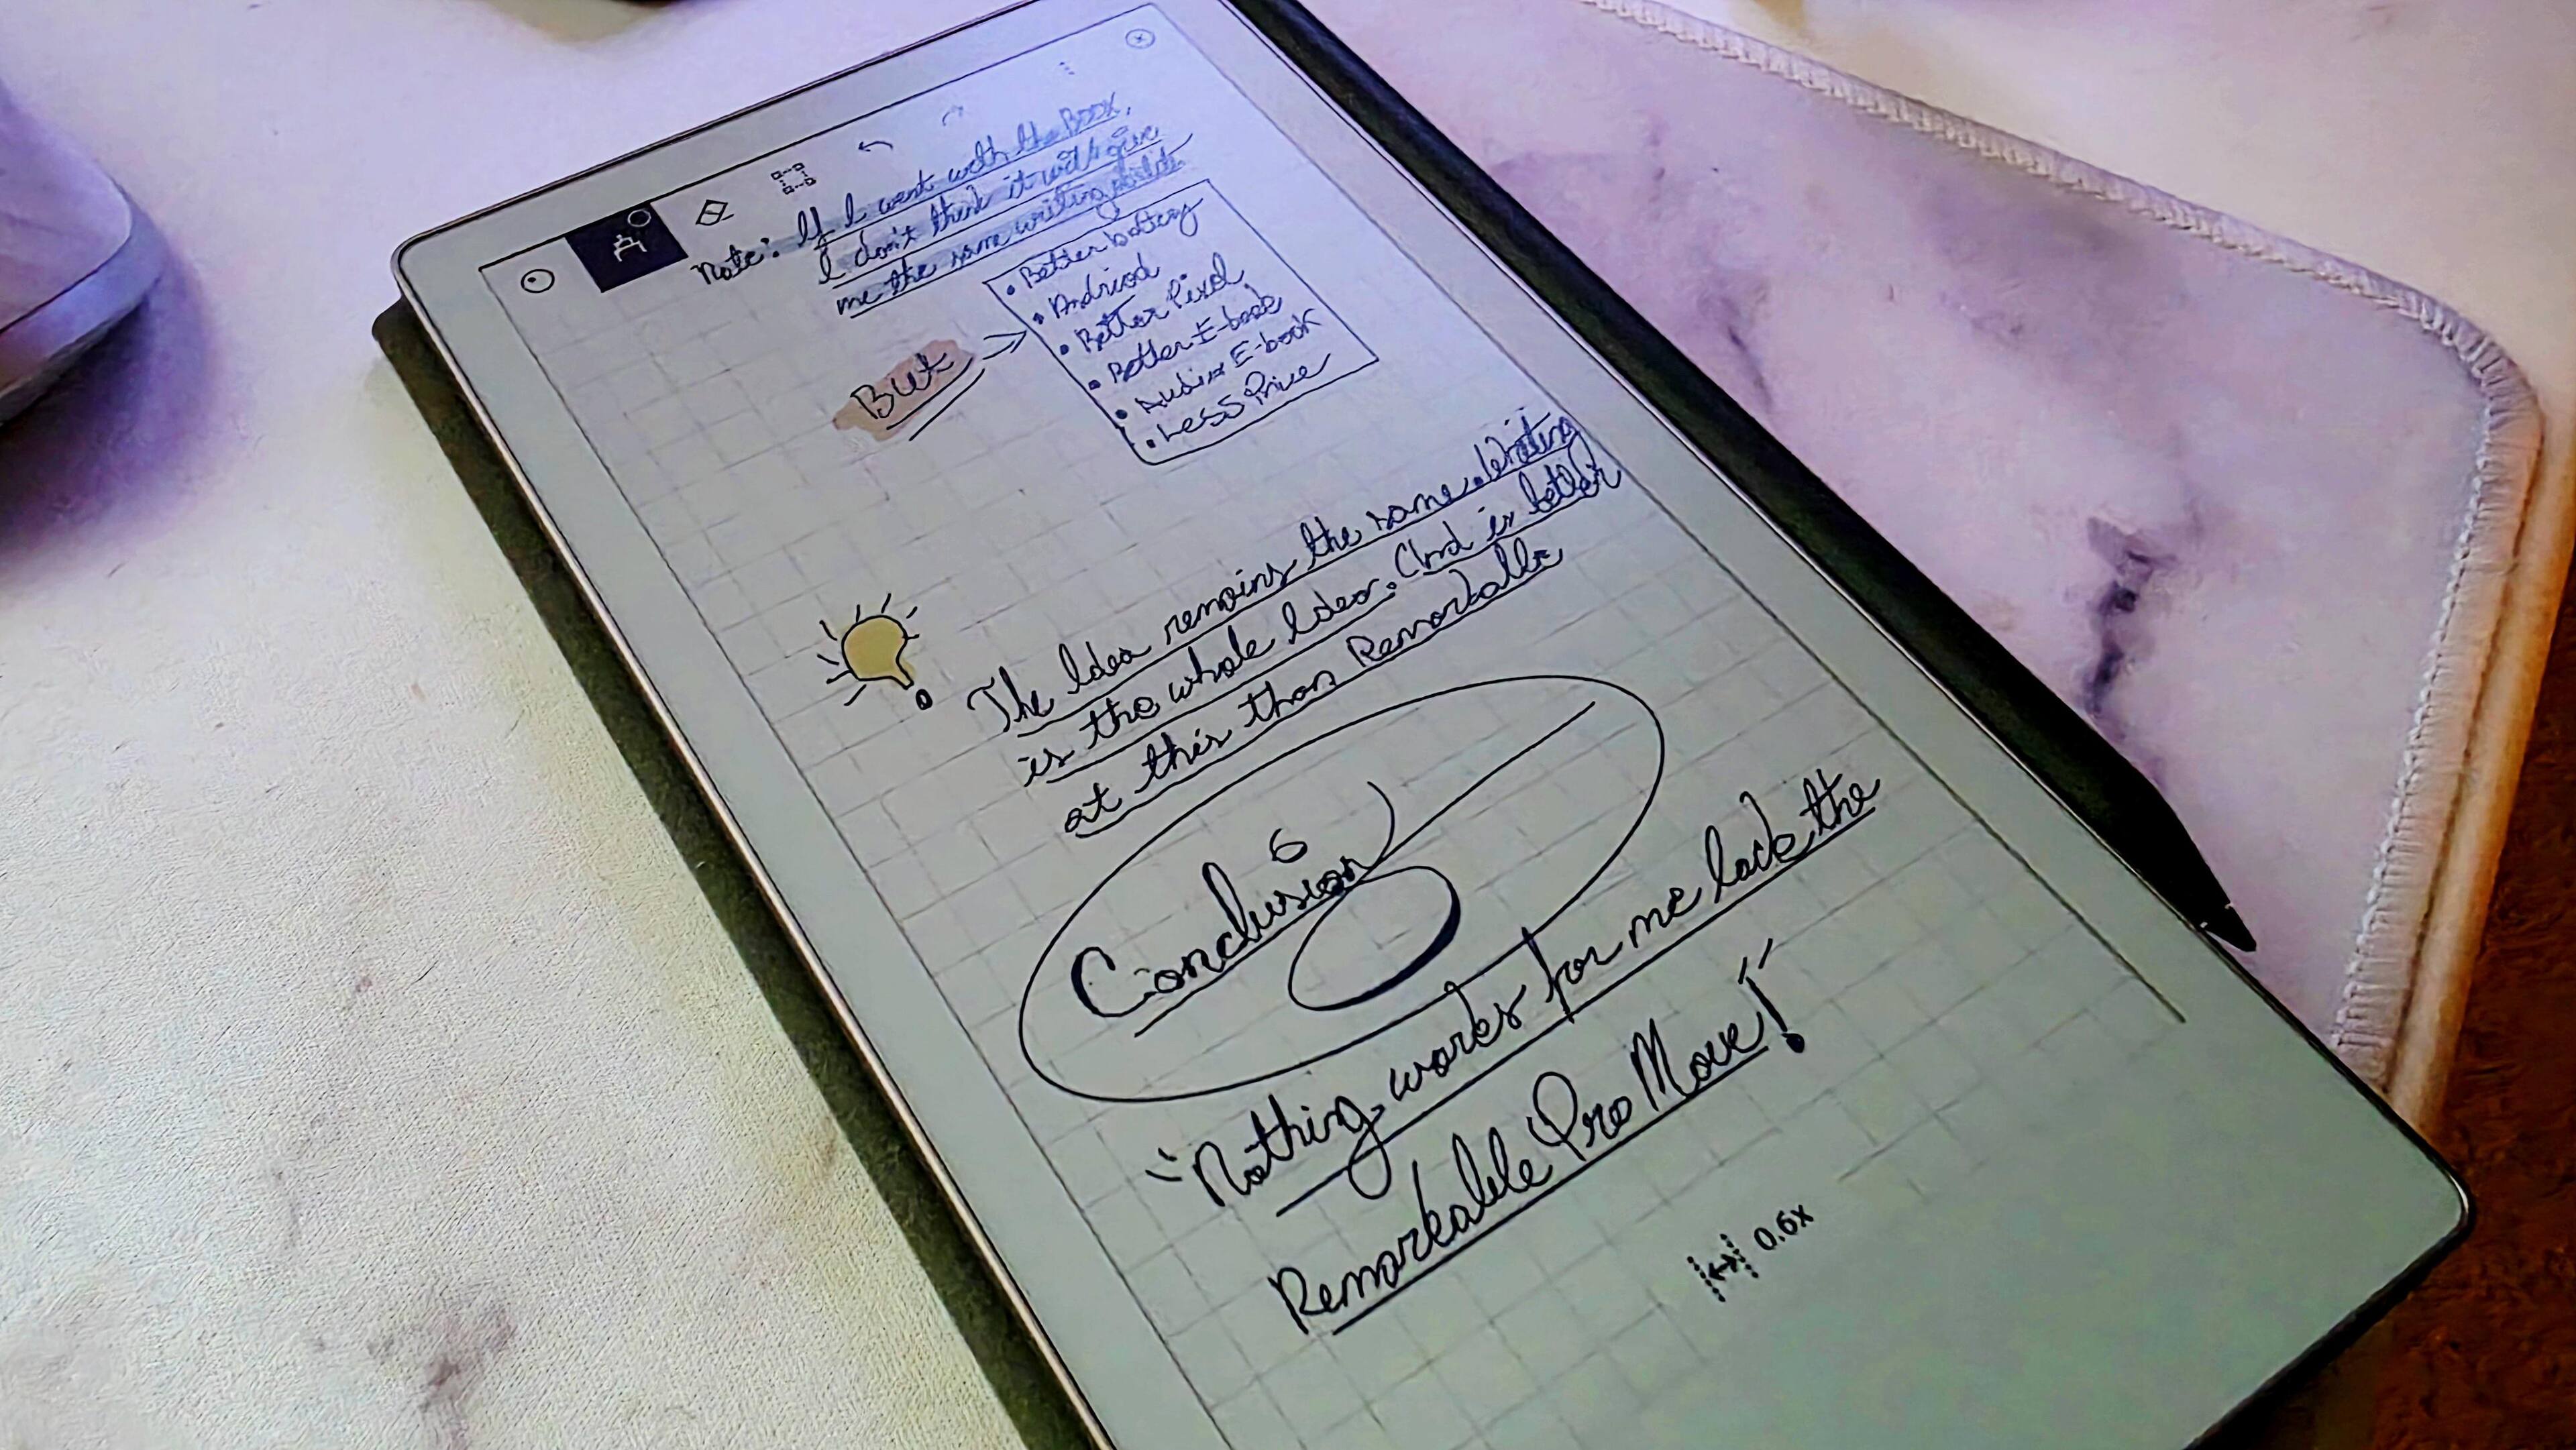 Note: If I went with the BOOX,
I don't think it will give
me the same writing
• Better battery
• Andriod
• Better Pixel
• Better E-book
• Audio E-book
• Less Price
But
The Idea remains the same. Writing
is the whole Idea. And is better
at this than Remarkable
Conclusion
"Nothing works for me lack the
Remarkable Pro Move!
0.6x